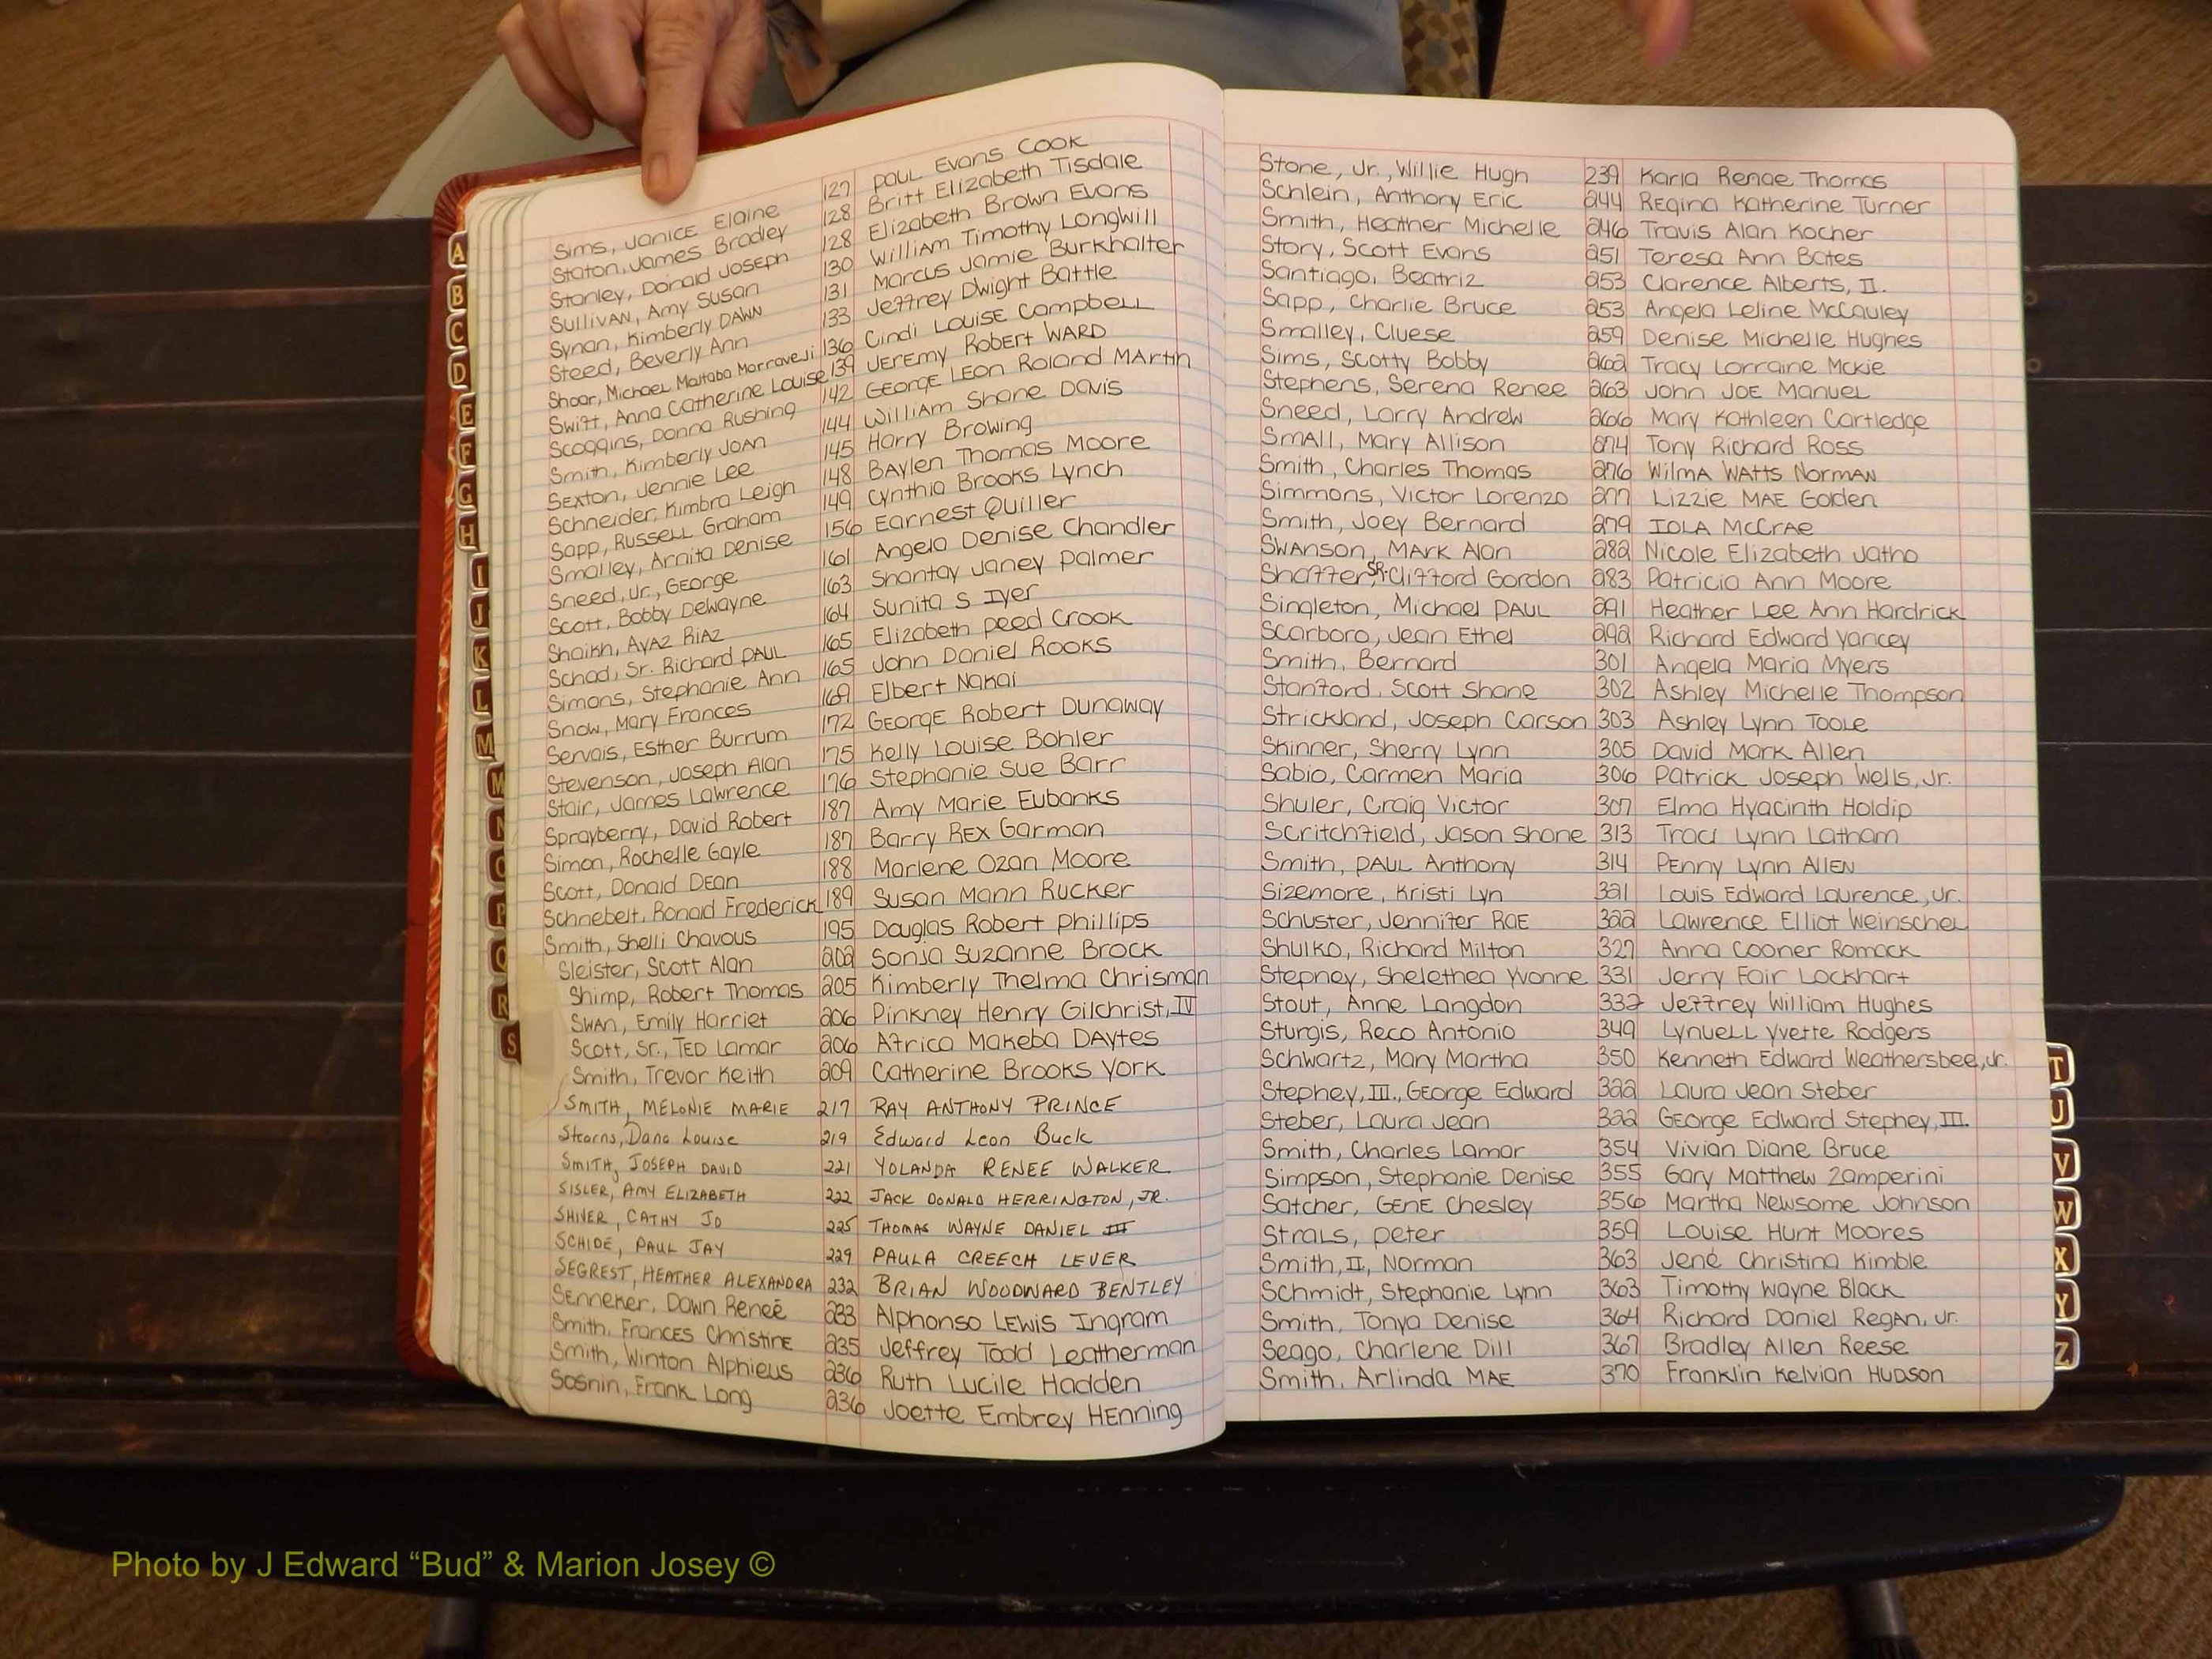 Sims, Janice Elaine 127 Paul Evans Cook
Staton, James Bradley 128 Britt Elizabeth Tisdale
Stanley, Donald Joseph 128 Elizabeth Brown Evans
Sullivan, Amy Susan 130 William Timothy Longwill
Synan, Kimberly Dawn 131 Marcus Jamie Burkhalter
Steed, Beverly Ann 133 Jeffrey Dwight Battle
Shoar, Michael Mojtaba Marraveji 136 Cindi Louise Campbell
Swift, Anna Catherine Louise 139 Jeremy Robert Ward
Scoggins, Donna Rushing 142 George Leon Roland Martin
Smith, Kimberly Joan 144 William Shane Davis
Sexton, Jennie Lee 145 Harry Browing
Schneider, Kimbra Leigh 148 Baylen Thomas Moore
Sapp, Russell Graham 149 Cynthia Brooks Lynch
Smalley, Arnita Denise 156 Earnest Quiller
Sneed, Jr., George 161 Angela Denise Chandler
Scott, Bobby Dewayne 163 Shantay Janey Palmer
Shaikh, Ayaz Riaz 164 Sunita S Iyer
Schad, Sr. Richard Paul 165 Elizabeth Peed Crook
Simons, Stephanie Ann 165 John Daniel Rooks
Snow, Mary Frances 169 Elbert Nakai
Servais, Esther Burrum 172 George Robert Dunaway
Stevenson, Joseph Alan 175 Kelly Louise Bohler
Stair, James Lawrence 176 Stephanie Sue Barr
Sprayberry, David Robert 187 Amy Marie Eubanks
Simon, Rochelle Gayle 187 Barry Rex Garman
Scott, Donald Dean 188 Marlene Ozan Moore
Schnebelt, Ronald Frederick 189 Susan Mann Rucker
Smith, Shelli Chavous 195 Douglas Robert Phillips
Sleister, Scott Alan 202 Sonja Suzanne Brock
Shimp, Robert Thomas 205 Kimberly Thelma Chrisman
Swan, Emily Harriet 206 Pinkney Henry Gilchrist, IV
Scott, Sr., Ted Lamar 206 Africa Makeba Daytes
Smith, Trevor Keith 209 Catherine Brooks York
SMITH, MELONIE MARIE 217 RAY ANTHONY PRINCE
Stearns, Dana Louise 219 Edward Leon Buck
SMITH, JOSEPH DAVID 221 YOLANDA RENEE WALKER
SISLER, AMY ELIZABETH 222 JACK DONALD HERRINGTON, JR.
SHIVER, CATHY JO 225 THOMAS WAYNE DANIEL III
SCHIDE, PAUL JAY 229 PAULA CREECH LEVER
SEGREST, HEATHER ALEXANDRA 232 BRIAN WOODWARD BENTLEY
Senneker, Dawn Reneé 233 Alphonso Lewis Ingram
Smith, Frances Christine 235 Jeffrey Todd Leatherman
Smith, Winton Alphieus 236 Ruth Lucile Hadden
Sosnin, Frank Long 236 Joette Embrey Henning
Stone, Jr., Willie Hugh 239 Karla Renae Thomas
Schlein, Anthony Eric 244 Regina Katherine Turner
Smith, Heather Michelle 246 Travis Alan Kocher
Story, Scott Evans 251 Teresa Ann Bates
Santiago, Beatriz 253 Clarence Alberts, II.
Sapp, Charlie Bruce 253 Angela Leline McCauley
Smalley, Cluese 259 Denise Michelle Hughes
Sims, Scotty Bobby 262 Tracy Lorraine Mckie
Stephens, Serena Renee 263 John Joe Manuel
Sneed, Larry Andrew 266 Mary Kathleen Cartledge
Small, Mary Allison 274 Tony Richard Ross
Smith, Charles Thomas 276 Wilma Watts Norman
Simmons, Victor Lorenzo 277 Lizzie Mae Golden
Smith, Joey Bernard 279 Iola McCrae
Swanson, Mark Alan 282 Nicole Elizabeth Jatho
Shaffer, Sr. Clifford Gordon 283 Patricia Ann Moore
Singleton, Michael Paul 291 Heather Lee Ann Hardrick
Scarboro, Jean Ethel 292 Richard Edward Yancey
Smith, Bernard 301 Angela Maria Myers
Stanford, Scott Shane 302 Ashley Michelle Thompson
Strickland, Joseph Carson 303 Ashley Lynn Toole
Skinner, Sherry Lynn 305 David Mark Allen
Sabio, Carmen Maria 306 Patrick Joseph Wells, Jr.
Shuler, Craig Victor 307 Elma Hyacinth Holdip
Scritchfield, Jason Shane 313 Traci Lynn Latham
Smith, Paul Anthony 314 Penny Lynn Allen
Sizemore, Kristi Lyn 321 Louis Edward Laurence, Jr.
Schuster, Jennifer Rae 322 Lawrence Elliot Weinschel
Shulko, Richard Milton 327 Anna Cooner Romack
Stepney, Shelethea Yvonne 331 Jerry Fair Lockhart
Stout, Anne Langdon 332 Jeffrey William Hughes
Sturgis, Reco Antonio 349 Lynuell Yvette Rodgers
Schwartz, Mary Martha 350 Kenneth Edward Weathersbee, Jr.
Stephey, III., George Edward 322 Laura Jean Steber
Steber, Laura Jean 322 George Edward Stephey, III.
Smith, Charles Lamar 354 Vivian Diane Bruce
Simpson, Stephanie Denise 355 Gary Matthew Zamperini
Satcher, Gene Chesley 356 Martha Newsome Johnson
Strals, Peter 359 Louise Hunt Moores
Smith, II, Norman 363 Jené Christina Kimble
Schmidt, Stephanie Lynn 363 Timothy Wayne Black
Smith, Tonya Denise 364 Richard Daniel Regan, Jr.
Seago, Charlene Dill 367 Bradley Allen Reese
Smith, Arlinda Mae 370 Franklin Kelvian Hudson
A
B
C
D
E
F
G
H
I
J
K
L
M
M
N
O
P
Q
R
S
T
U
V
W
X
Y
Z
Photo by J Edward “Bud” & Marion Josey ©